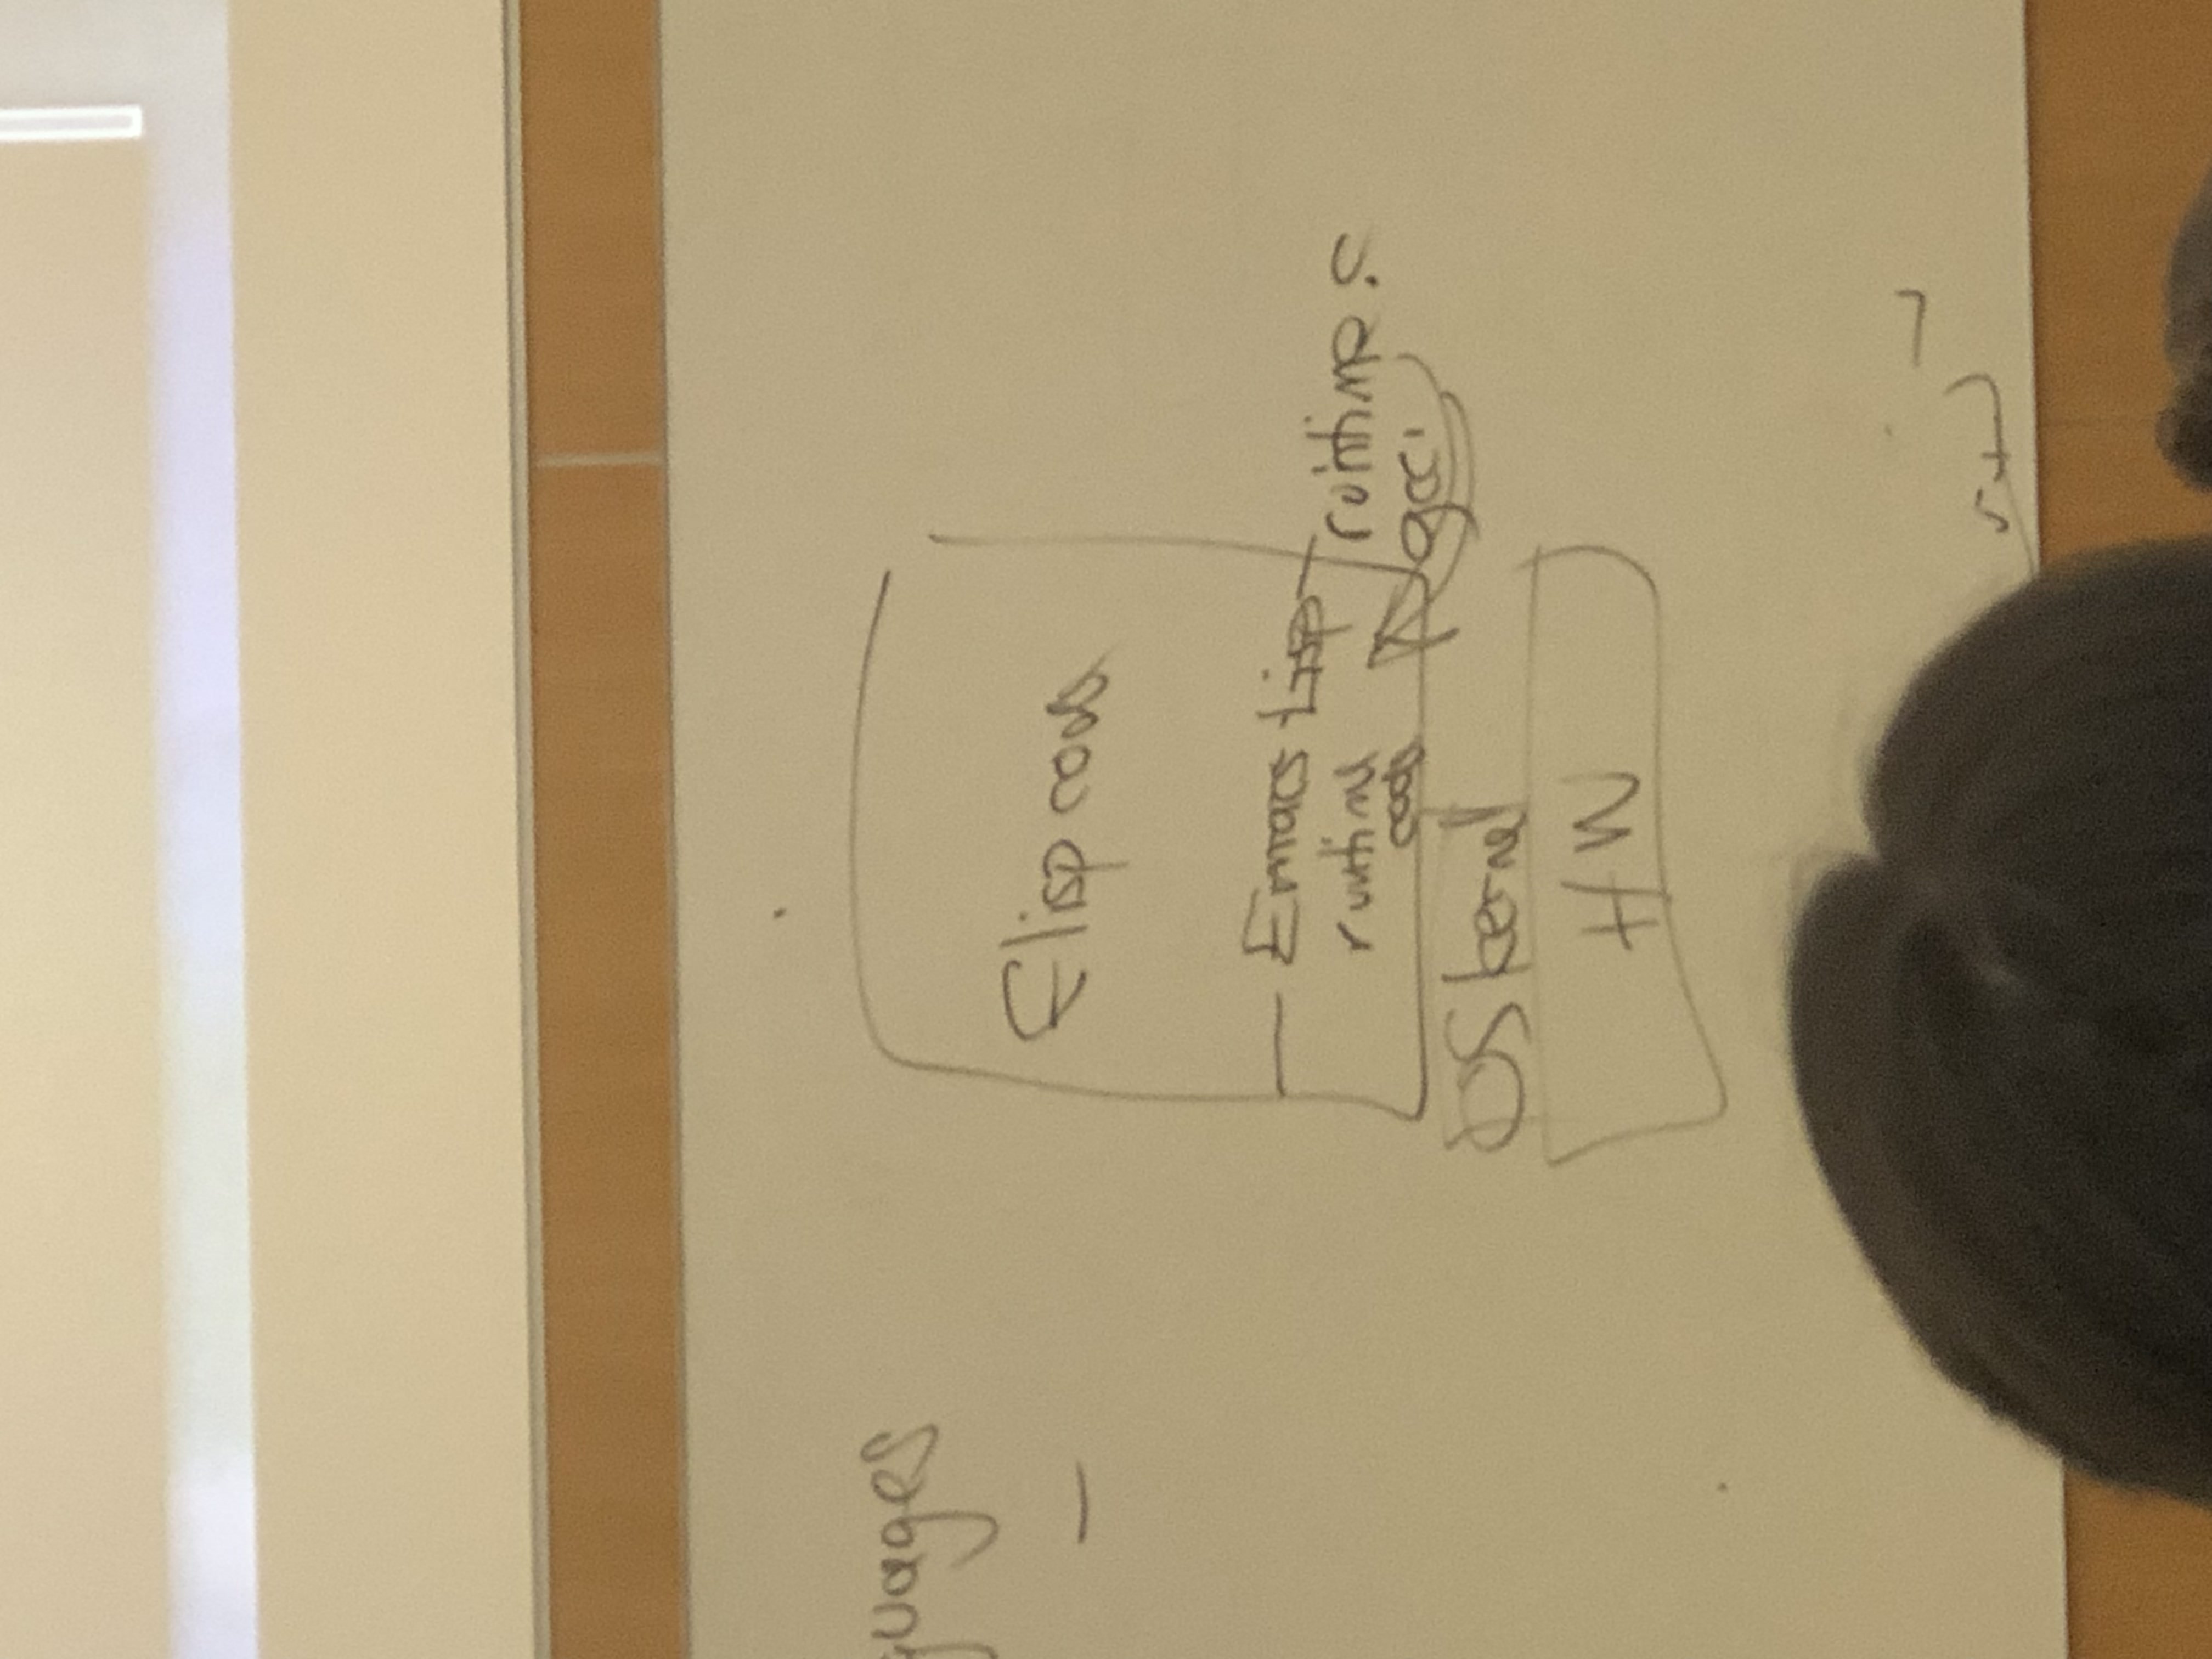 guages
Elisp code
Emacs Lisp
runtime
code
runtime.c
gcc
OS kernel
H/W